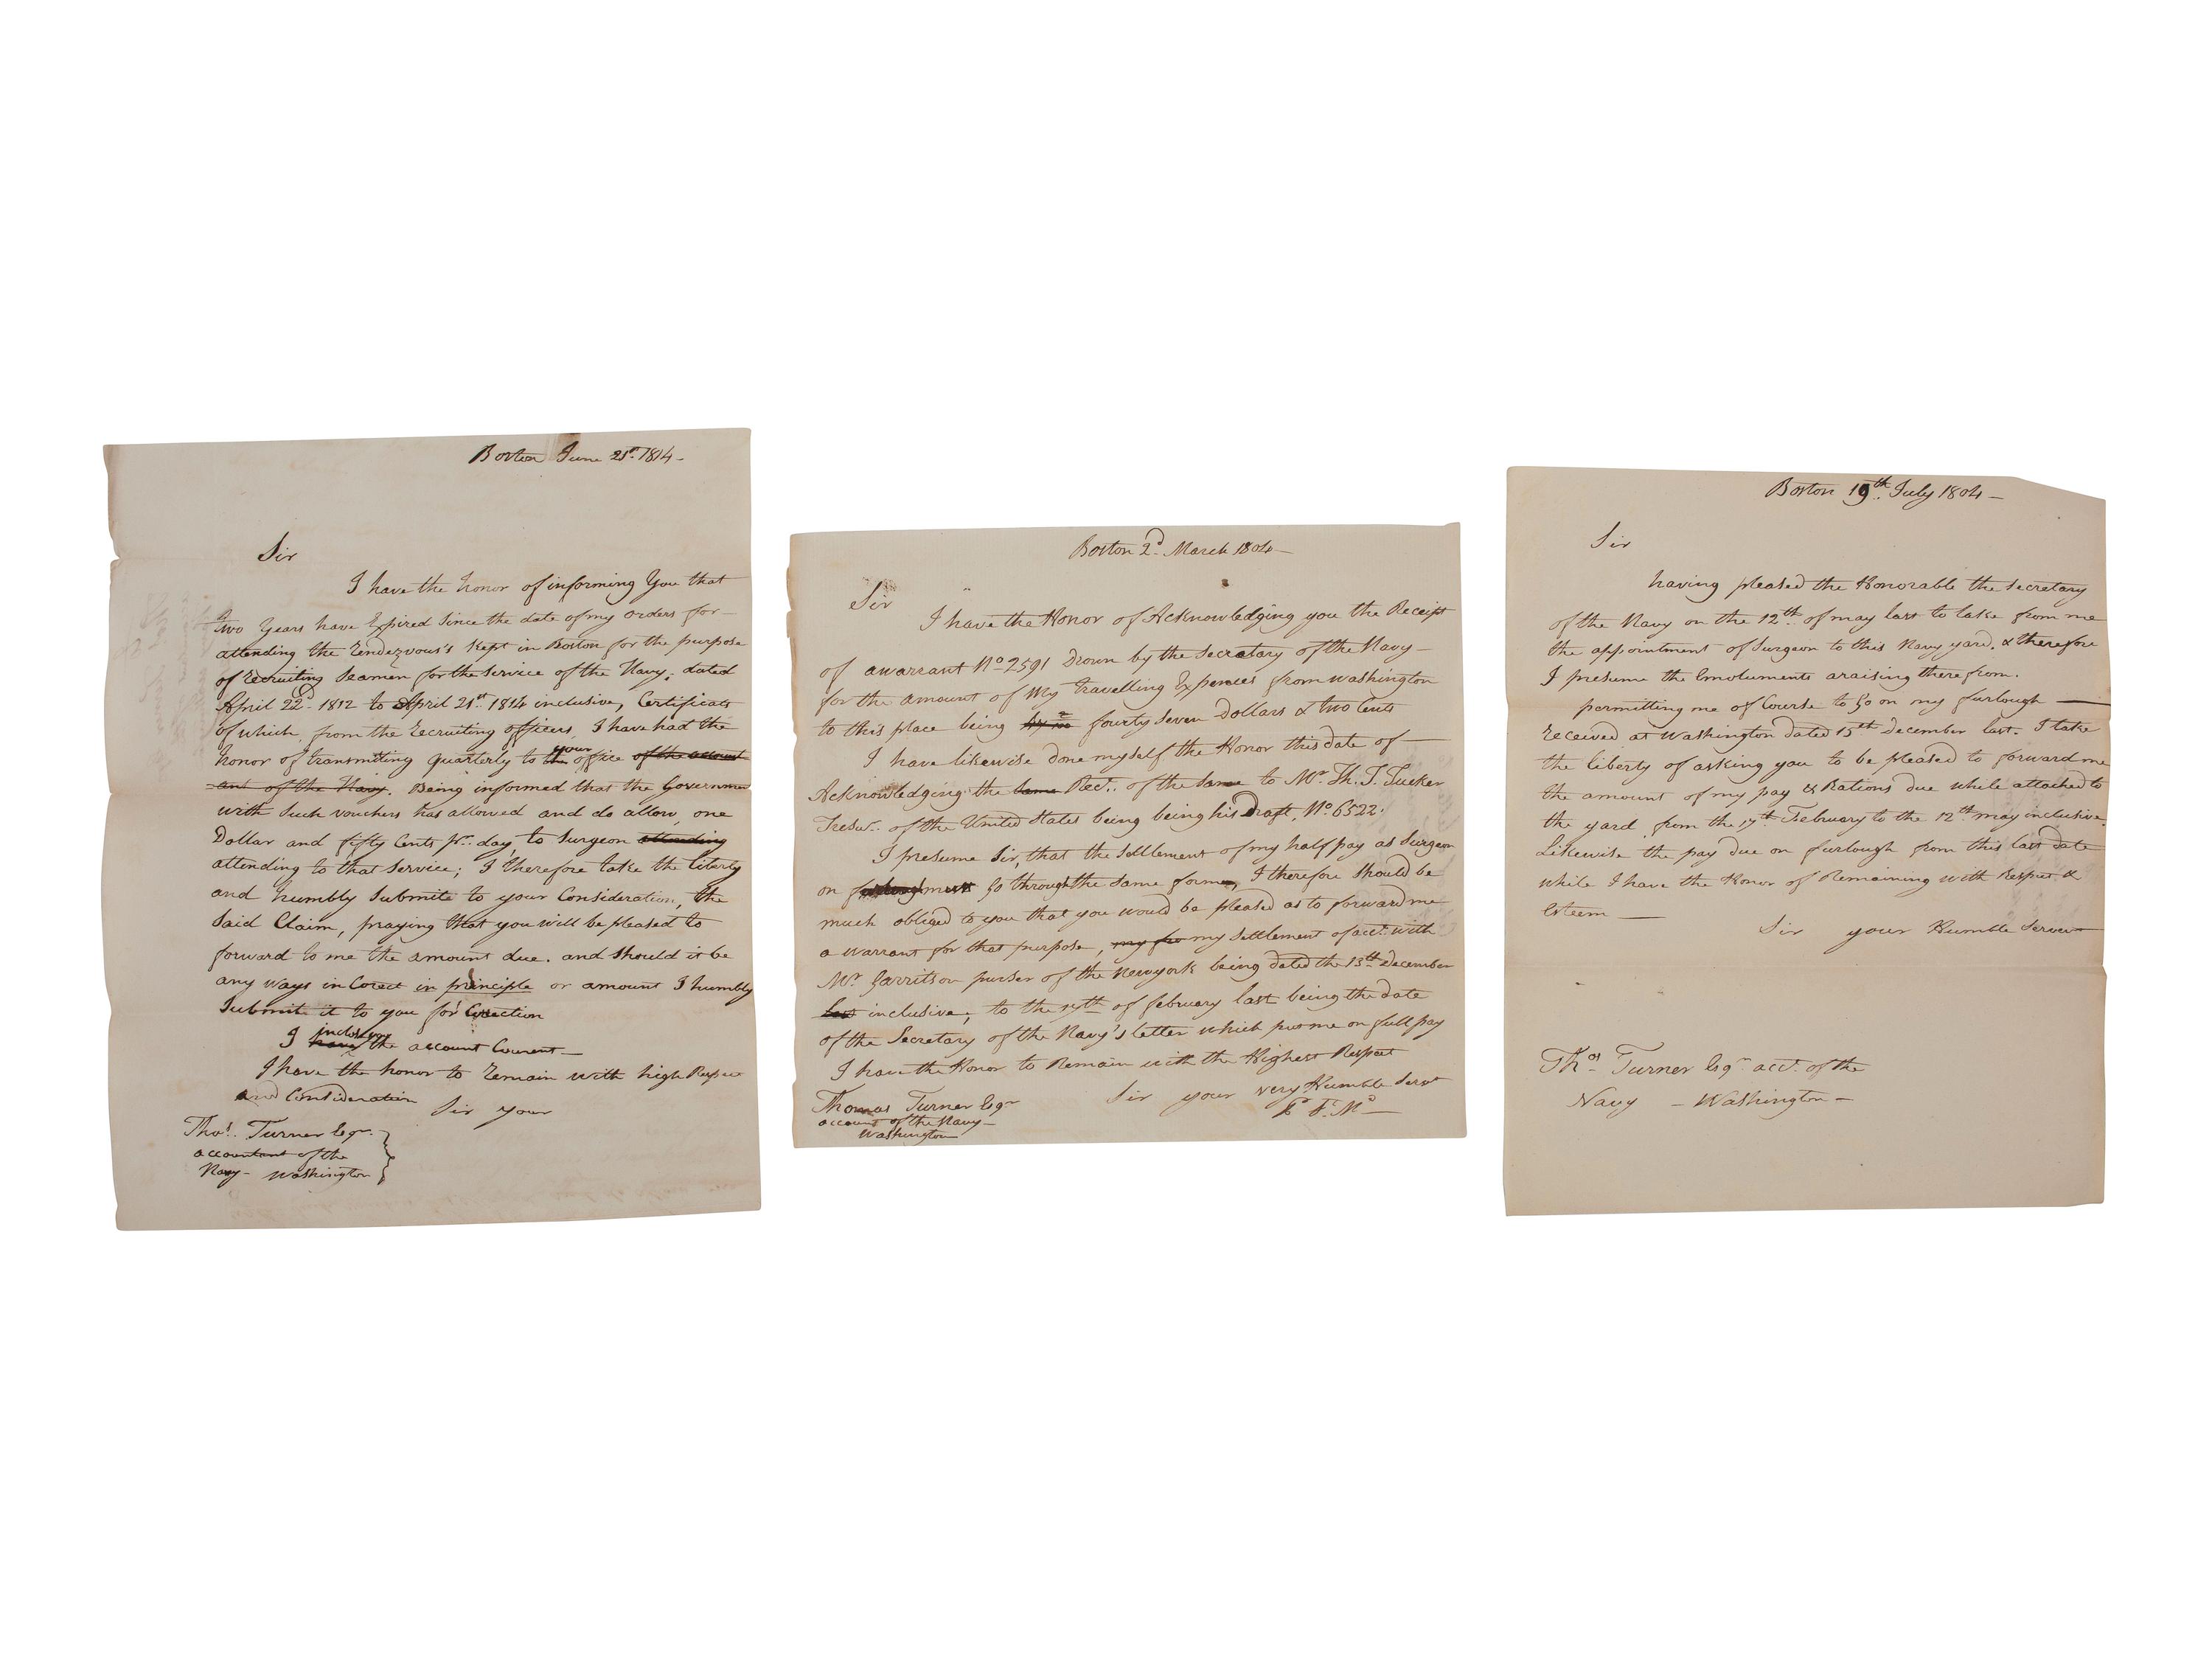 Boston June 21st. 1814 -
Sir
I have the honor of informing You that
two Years have Expired Since the date of my orders for -
attending the Rendezvous's Kept in Boston for the purpose
of Recruiting Seamen for the Service of the Navy; dated
April 22d. 1812 to April 21st 1814 inclusive, Certificats
of which, from the Recruiting officers, I have had the
honor of transmitting quarterly to your office of the account
ant of the Navy. Being informed that the Governmen
with Such vouchers has allowed and do allow, one
Dollar and fifty Cents pr. day, to Surgeon attending
attending to that Service; I therefore take the liberty
and humbly Submite to your Consideration, the
Said Claim, praying that you will be pleased to
forward to me the amount due. and should it be
any ways in Corect in principle or amount I humbly
Submit it to you for Corection
I have inclose the account Courent -
I have the honor to Remain with high Respect
and Consideration
Sir your
Thos. Turner Esqr.
accountant of the
Navy - Washington
Boston 2d. March 1804 -
Sir
I have the Honor of Acknowledging you the Receipt
of a warrant No. 2591 Drown by the Secretary of the Navy -
for the amount of My travelling Expences from washington
to this place being fourty Seven Dollars & two Cents
I have likewise done myself the Honor this date of -
Acknowledging the Same Rect. of the Same to Mr. Th. T. Tucker
Tresur. of the United States being being his Draft, No. 6522.
I presume Sir, that the Settlement of my half pay as Surgeon
on furlough must Go through the Same forme, I therefore Should be
much obliged to you that you would be pleased as to forward me
a warrant for that purpose, my fro my Settlement of acct. with
Mr. Garritson purser of the Newyork being dated the 15th december
last inclusive, to the 17th of february last being the date
of the Secretary of the Navy's letter which put me on full pay
I have the Honor to Remain with the Highest Respect
Sir your very Humble Servt
Thomas Turner Esqr
account of the Navy -
Washington
Boston 19th. July 1804 -
Sir
having pleased the Honorable the Secretary
of the Navy on the 12th. of may last to take from me
the appointment of Surgeon to this Navy yard, & therefore
I presume the Emoluments araising there from.
permitting me of Course to Go on my furlough -
Received at Washington dated 15th December last. I take
the liberty of asking you to be pleased to forward me
the amount of my pay & Rations due while attached to
the yard from the 17th February to the 12th may inclusive.
Likewise the pay due on furlough from this last date
while I have the Honor of Remaining with Respect &
Esteem -
Sir your Humble Servant
Thos Turner Esqr acct. of the
Navy - Washington -